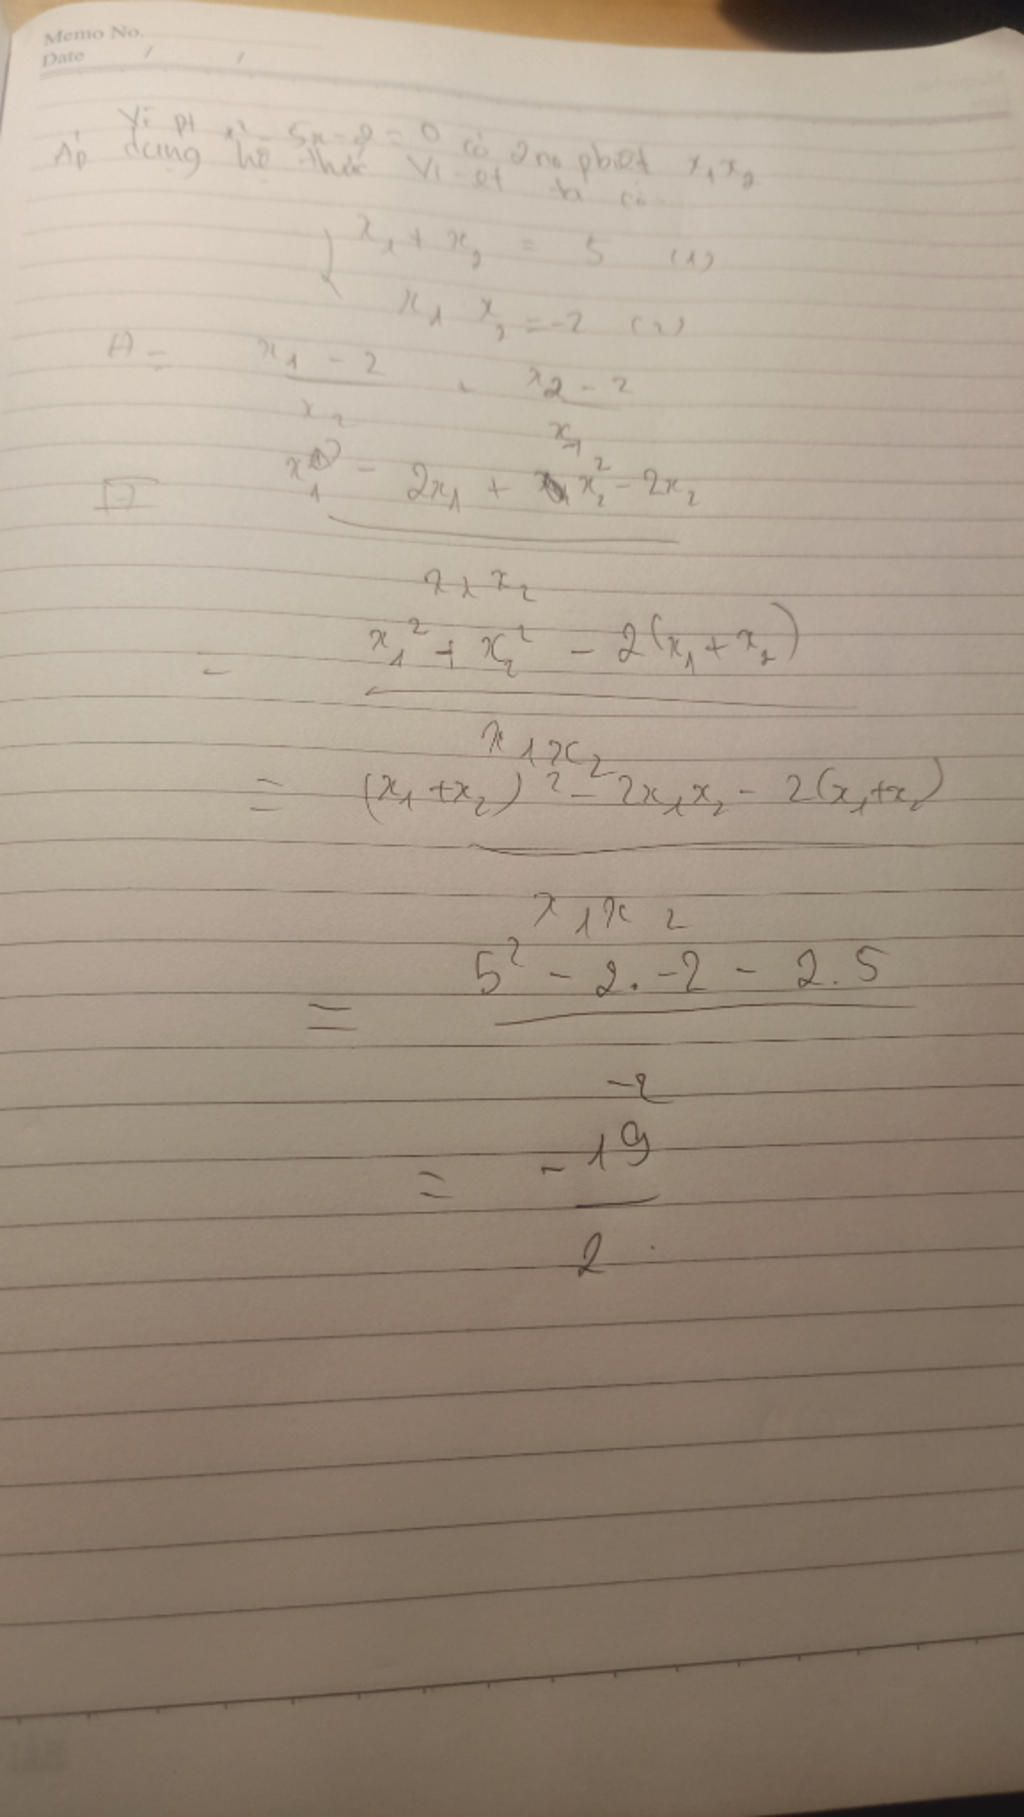 Memo No.
Date / /
Vì pt x² - 5x - 2 = 0 có 2 no pbiệt x₁ x₂
Áp dụng hệ thức Vi-ét ta có
x₁ + x₂ = 5 (1)
x₁ x₂ = -2 (2)
A = x₁ - 2 x₂ - 2
x₂ x₁
x₁² - 2x₁ + x₂² - 2x₂
x₁ x₂
= x₁² + x₂² - 2(x₁ + x₂)
x₁x₂
= (x₁ + x₂)² - 2x₁x₂ - 2(x₁+x₂)
x₁x₂
= 5² - 2. -2 - 2.5
-2
= -19
2